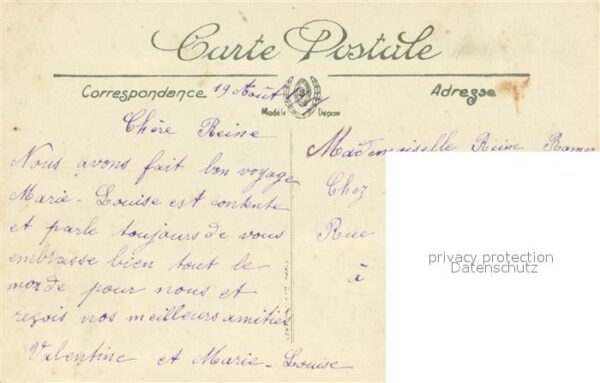 Carte Postale
Correspondance 19 Août
Adresse
Modèle Déposé
Chère Reine
Mademoiselle Reine
Nous avons fait bon voyage
Chez
Marie-Louise est contente
et parle toujours de vous
Rue
embrasse bien tout le
à
monde pour nous et
reçois nos meilleurs amitiés
Valentine et Marie-Louise
privacy protection
Datenschutz